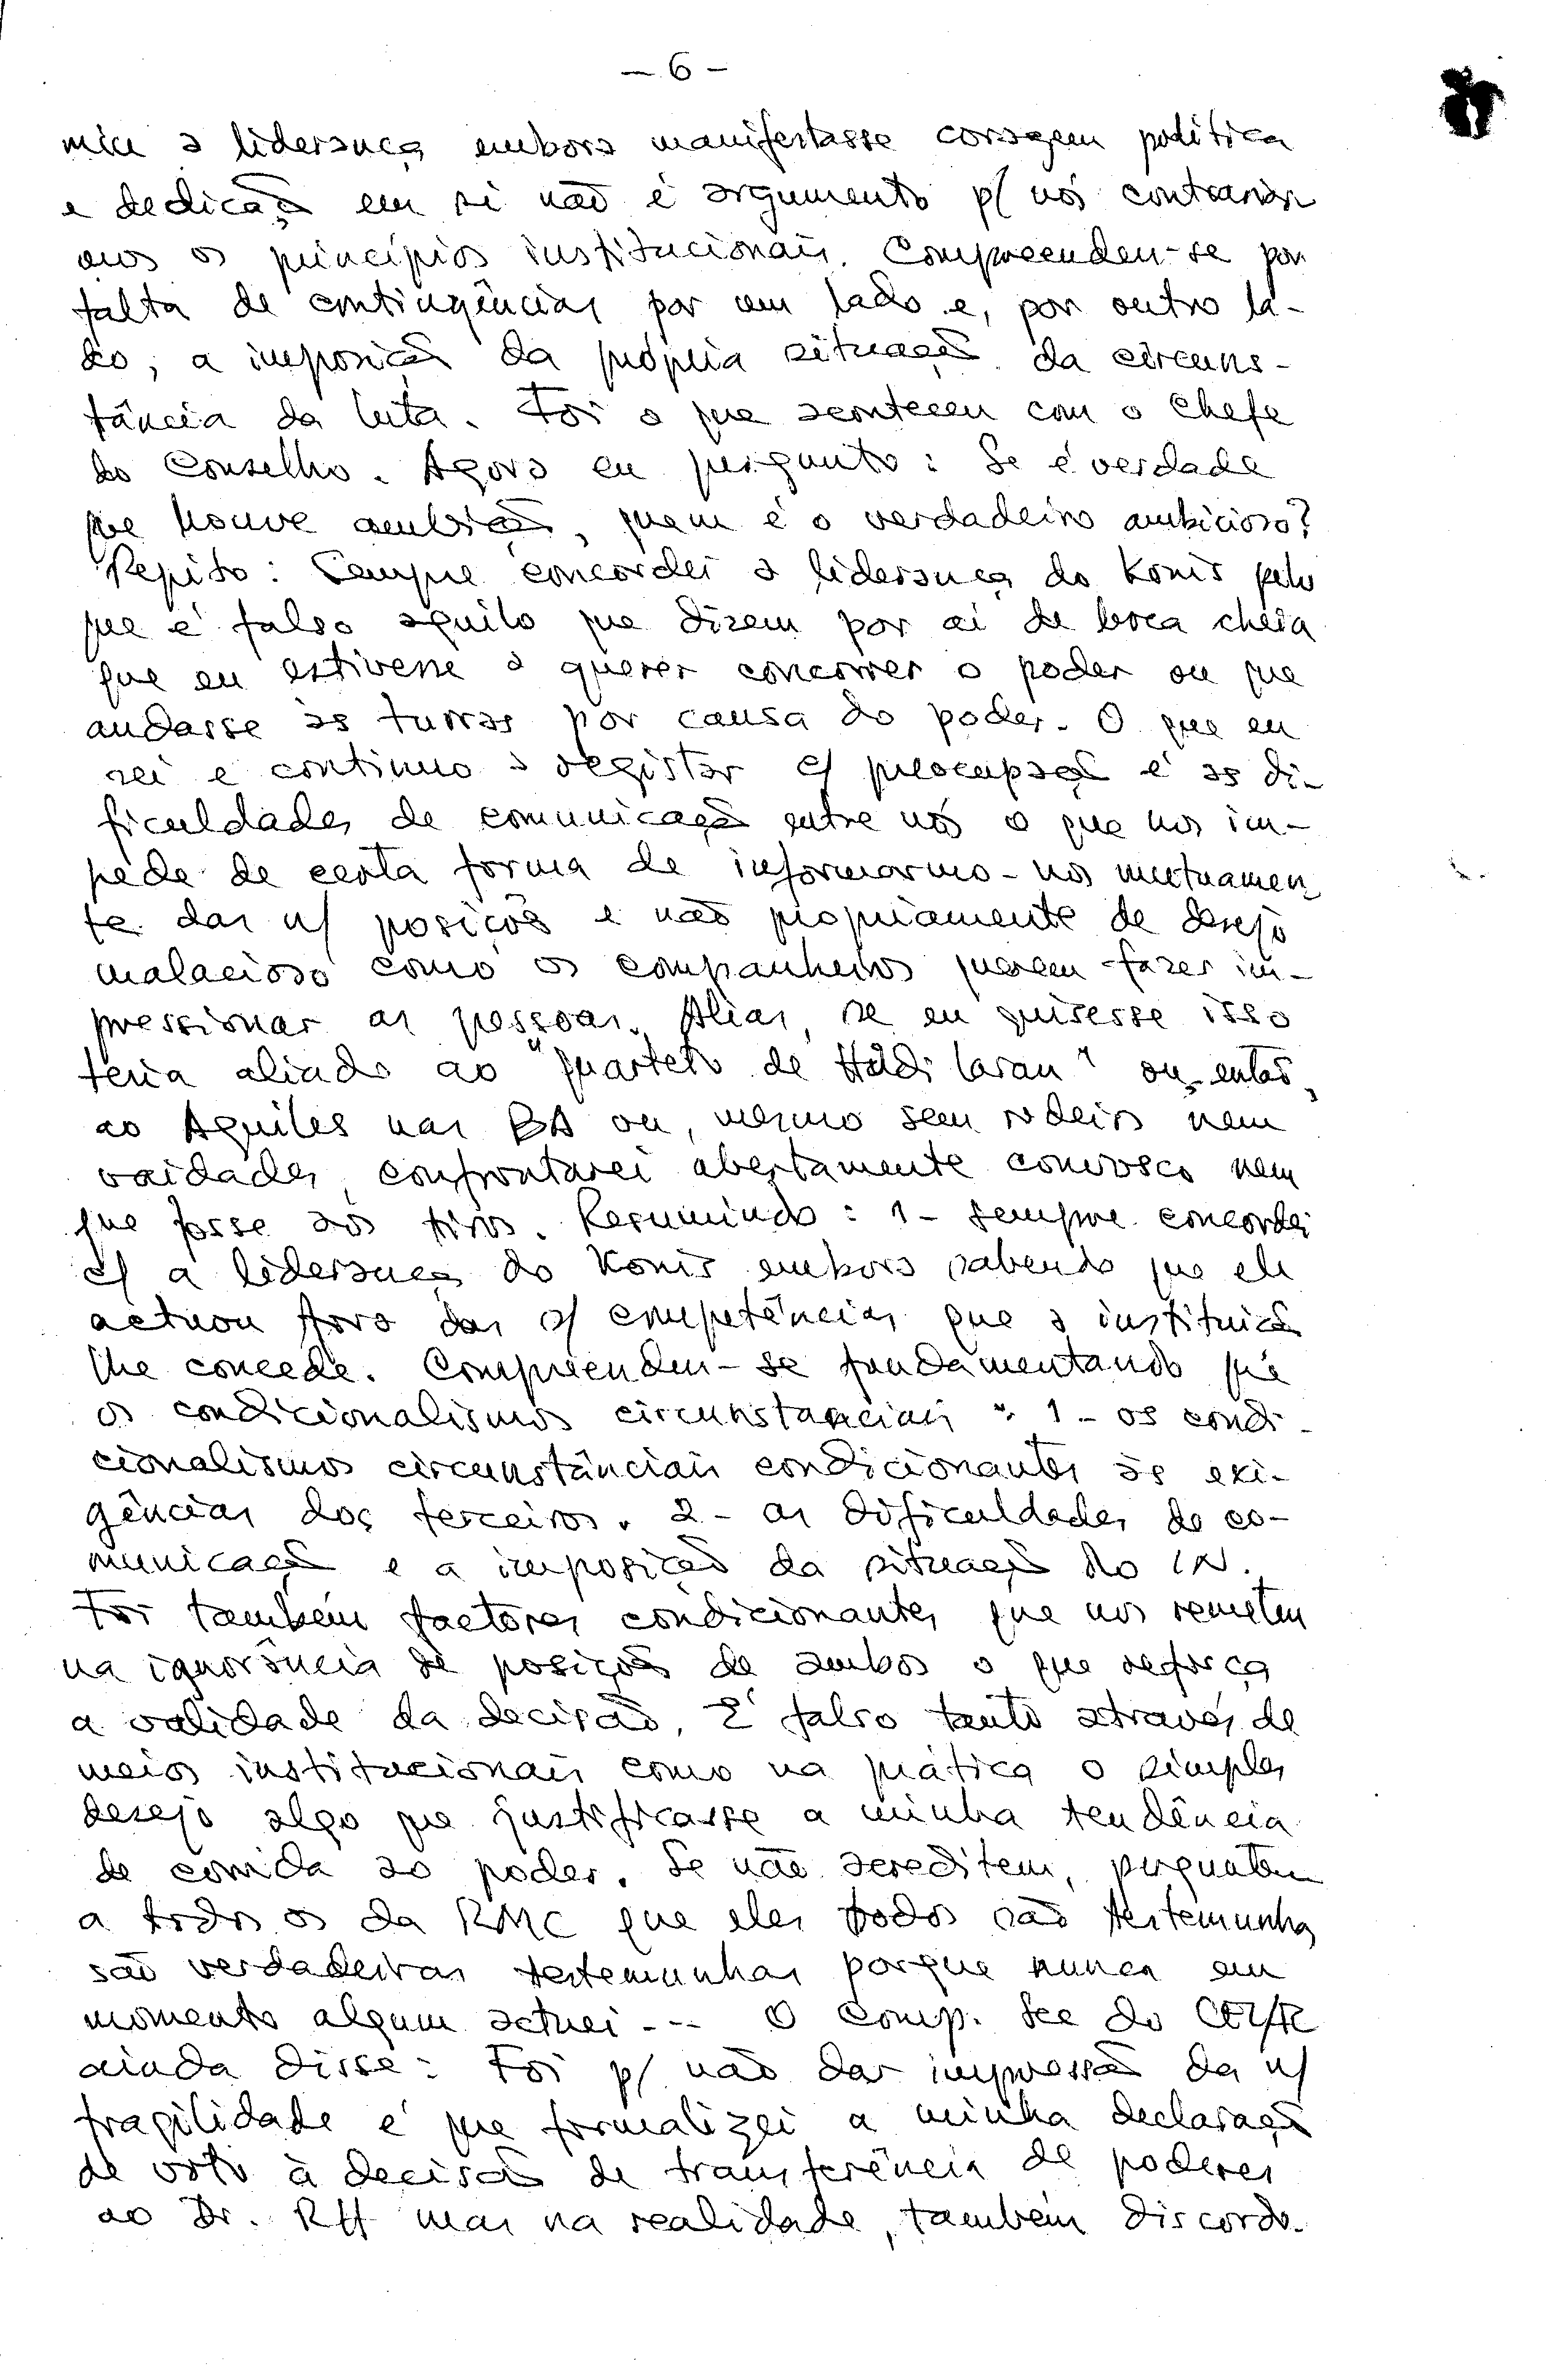 — 6 —
a liderança embora manifestasse coragem política
e dedicação em si não é argumento p/ nós contrariar
mos os princípios institucionais. Compreendeu-se por
falta de contingências por um lado e, por outro la-
do, a imposição da própria situação da circuns-
tância da luta. Foi o que aconteceu com o Chefe
do Conselho. Agora eu pergunto: Se é verdade
que houve ambição, quem é o verdadeiro ambicioso?
Repito: Sempre concordei a liderança do Konis pelo
que é falso aquilo que dizem por aí de boca cheia
que eu estivesse a querer concorrer o poder ou que
andasse às turras por causa do poder. O que eu
sei e continuo a registar c/ preocupação é as di-
ficuldades de comunicação entre nós o que nos im-
pede de certa forma de informarmo-nos mutuamen
te das n/ posições e não propriamente de desejo
malacioso como os companheiros querem fazer im-
pressionar as pessoas. Alias, se eu quisesse isso
teria aliado ao "quarteto de Hudi Laran" ou então,
ao Aquiles nas BA ou, mesmo sem rodeios nem
vaidades, confrontarei abertamente convosco nem
que fosse aos tiros. Resumindo: 1- Sempre concordei
c/ a liderança do Konis embora sabendo que ele
actuou fora das s/ competências que a instituição
lhe concede. Compreendeu-se fundamentando que
os condicionalismos circunstanciais: 1- os condi-
cionalismos circunstânciais condicionantes às exi-
gências dos terceiros. 2- as dificuldades de co-
municação e a imposição da situação do IN.
Foi também factores condicionantes que nos remeteu
na ignorância de posições de ambos o que reforça
a validade da decisão. É falso tanto através de
meios institucionais como na prática o simples
desejo algo que justificasse a minha tendência
de corrida ao poder. Se não acreditem, perguntem
a todos os da RMC que eles todos são testemunha
são verdadeiras testemunhas porque nunca em
momento algum actuei... O Comp. Sec do
ainda disse: Foi p/ não dar impressão da n/
fragilidade é que formalizei a minha declaração
de voto à decisão de transferência de poderes
ao Dr. RH mas na realidade, também discordo.